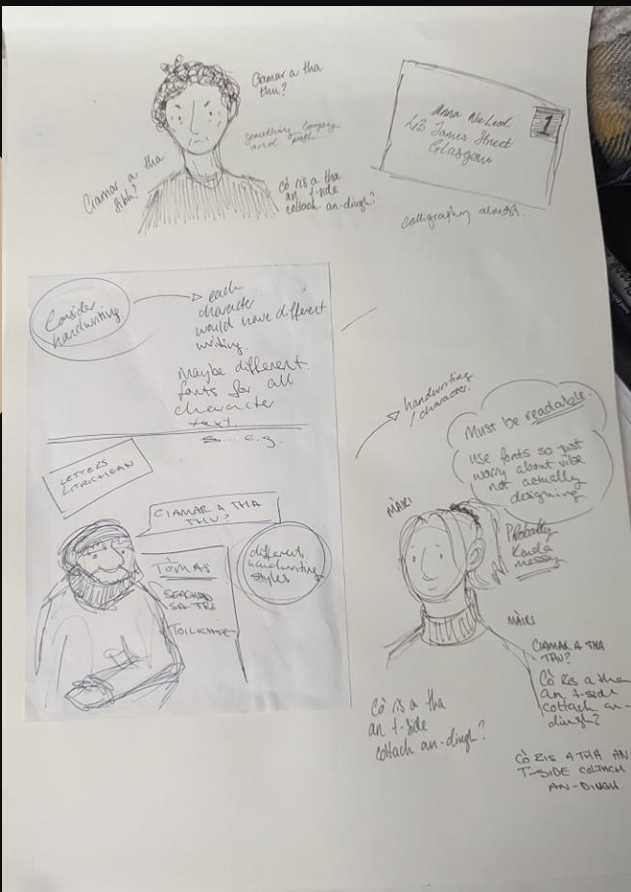 Ciamar a tha
thu?
something
and
Ciamar a tha
sibh?
Cò ris a tha
an t-side
coltach an-diugh?
Anna NicLeod
43 James Street
Glasgow
1
calligraphy almost.
Consider
handwriting
each
character
would have different
writing.
Maybe different
fonts for all
character
text
e.g.
LETTERS
LITRICHEAN
CIAMAR A THA
THU?
TÒMAS
SEACHD
SA TRÌ
TOILICHTE
different
handwriting
styles
handwriting
/ character.
Must be readable.
use fonts so just
worry about vibe
not actually
designing
MÀIRI
Probably
Kinda
messy
MÀIRI
CIAMAR A THA
THU?
Cò ris a tha
an t-side
coltach an-
diugh?
Cò ris a tha
an t-side
coltach an-diugh?
CÒ RIS A THA AN
T-SIDE COLTACH
AN-DIUGH